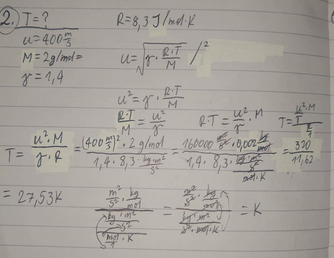 2. T = ? R = 8,3 J/mol·K
u = 400 m/s
M = 2 g/mol =
γ = 1,4
u = √(γ · R·T/M) /²
u² = γ · R·T/M
R·T/M = u²/γ R·T = u²/γ · M T = u²·M/γ/R
T = u²·M/γ·R = (400 m/s)² · 2 g/mol / 1,4 · 8,3 kg·m²/s²/mol·K = 160000 m²/s² · 0,002 kg/mol / 1,4 · 8,3 kg·m²/s²/mol·K = 320/11,62
= 27,53K m²/s² · kg/mol / kg·m²/s²/mol·K = m²/s² · kg/mol / kg·m²/s²·mol·K = K